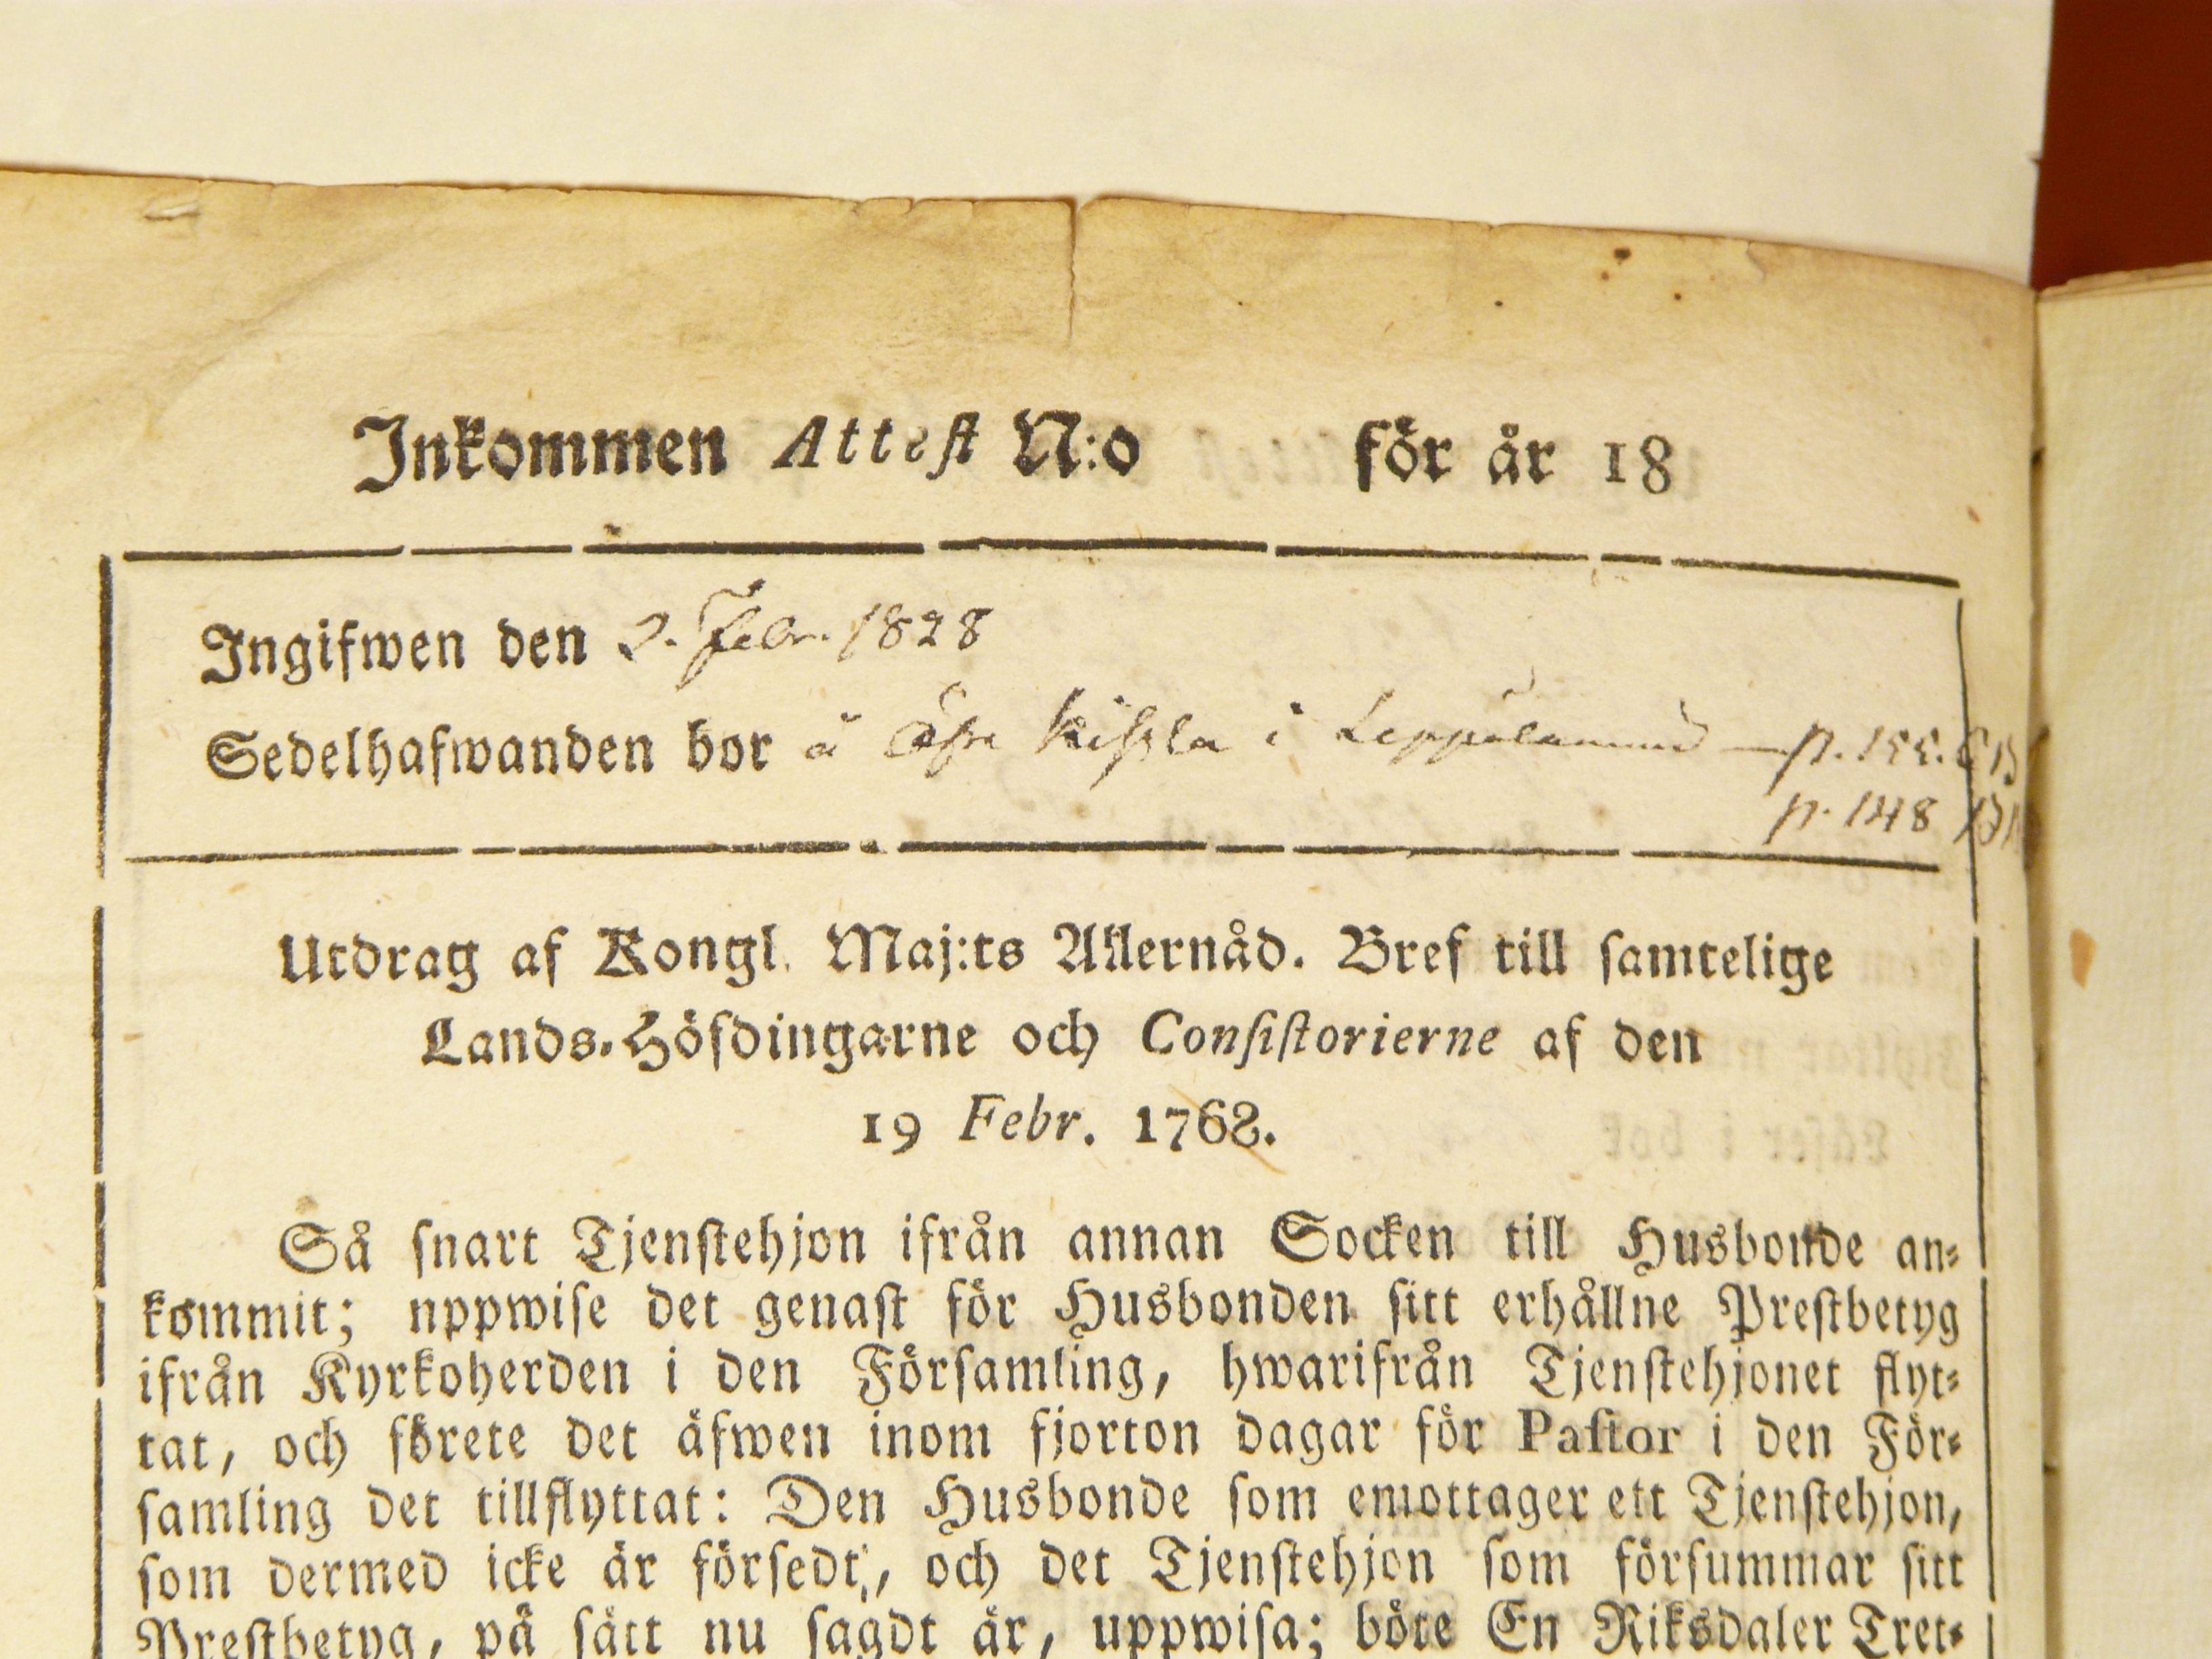 Inkommen Attest N:o för år 18
Ingifwen den 2. Febr. 1828
Sedelhafwanden bor å i p. 155.
p. 148
Utdrag af Kongl. Maj:ts Allernåd. Bref till samtelige
Lands-Höfdingarne och Consistorierne af den
19 Febr. 1768.
Så snart Tjenstehjon ifrån annan Socken till Husbonde an-
kommit; nppwise det genast för Husbonden sitt erhållne Prestbetyg
ifrån Kyrkoherden i den Församling, hwarifrån Tjenstehjonet flyt-
tat, och förete det äfwen inom fjorton dagar för Pastor i den För-
samling det tillflyttat: Den Husbonde som emottager ett Tjenstehjon,
som dermed icke är försedt, och det Tjenstehjon som försummar sitt
Prestbetyg, på sätt nu sagdt är, uppwisa; böte En Riksdaler Tret-